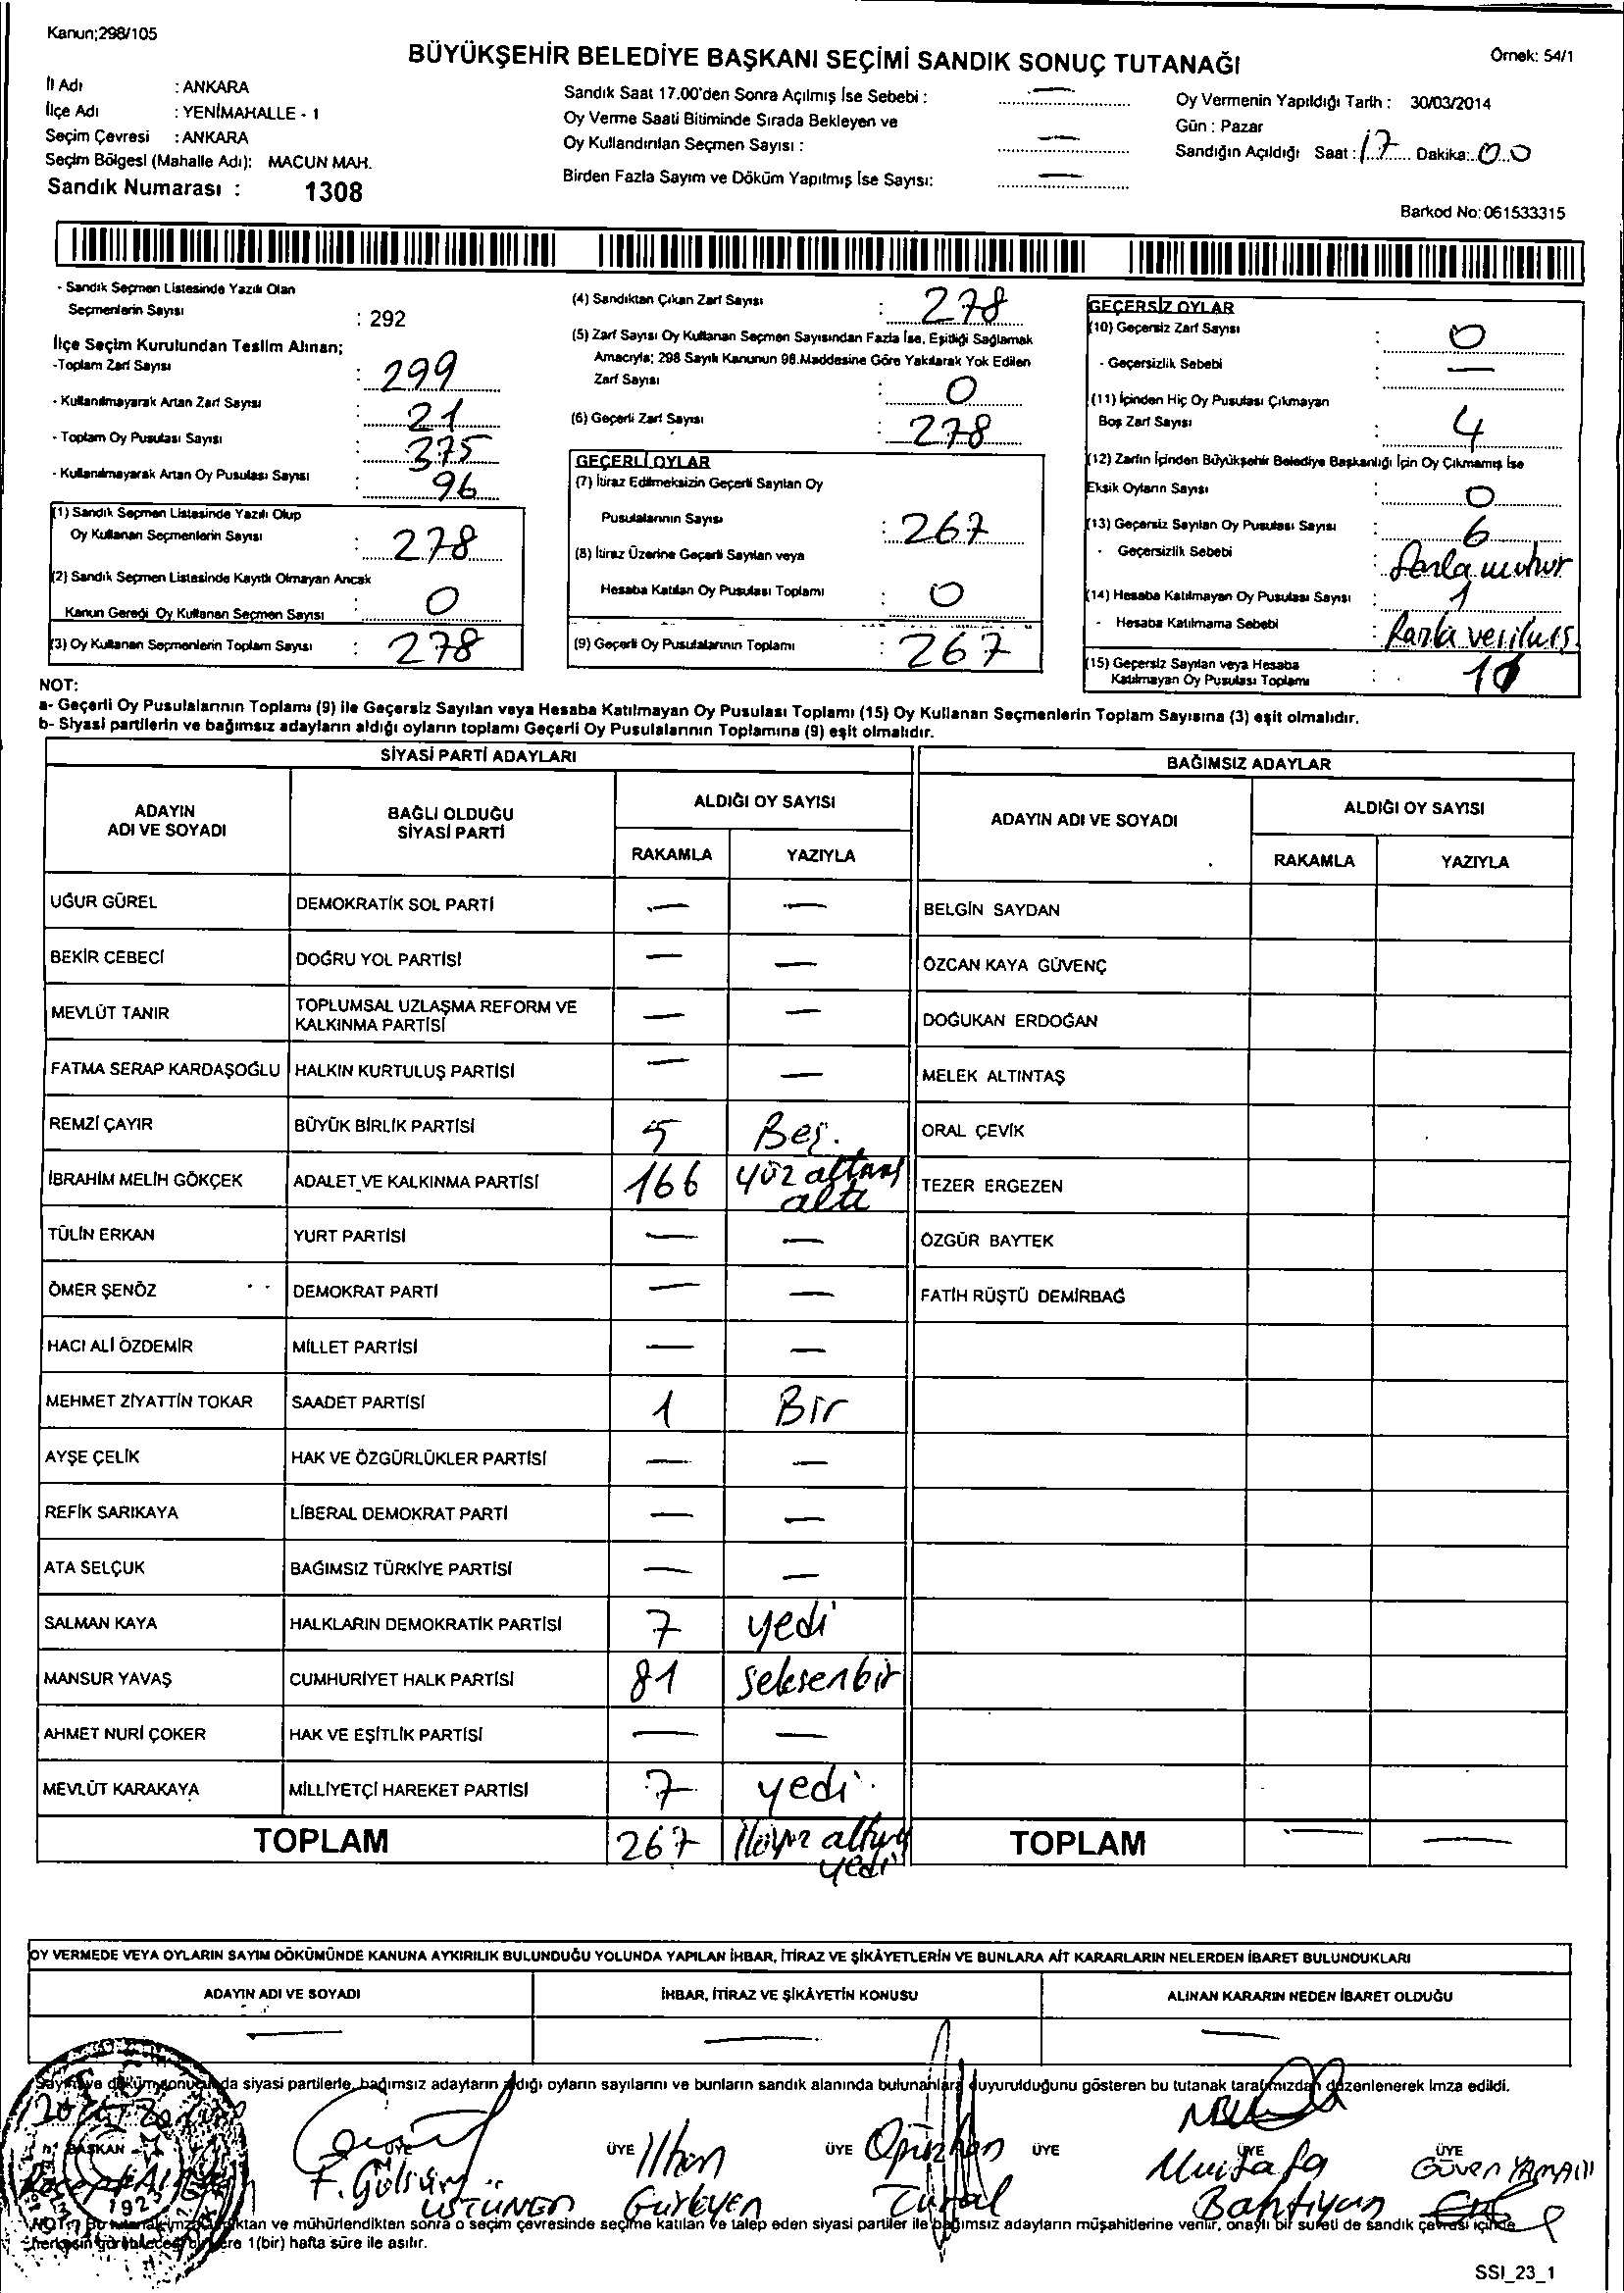 Kanun;298/105
BÜYÜKŞEHİR BELEDİYE BAŞKANI SEÇİMİ SANDIK SONUÇ TUTANAĞI
Örnek: 54/1
İl Adı : ANKARA
İlçe Adı : YENİMAHALLE - 1
Seçim Çevresi : ANKARA
Seçim Bölgesi (Mahalle Adı): MACUN MAH.
Sandık Numarası : 1308
Sandık Saat 17.00'den Sonra Açılmış İse Sebebi : —
Oy Verme Saati Bitiminde Sırada Bekleyen ve
Oy Kullandırılan Seçmen Sayısı : —
Birden Fazla Sayım ve Döküm Yapılmış İse Sayısı: —
Oy Vermenin Yapıldığı Tarih : 30/03/2014
Gün : Pazar
Sandığın Açıldığı Saat : 17 Dakika: 00
Barkod No:061533315
- Sandık Seçmen Listesinde Yazılı Olan
Seçmenlerin Sayısı : 292
İlçe Seçim Kurulundan Teslim Alınan;
-Toplam Zarf Sayısı : 299
- Kullanılmayarak Artan Zarf Sayısı : 21
- Toplam Oy Pusulası Sayısı : 375
- Kullanılmayarak Artan Oy Pusulası Sayısı : 96
(1) Sandık Seçmen Listesinde Yazılı Olup
Oy Kullanan Seçmenlerin Sayısı : 278
(2) Sandık Seçmen Listesinde Kayıtlı Olmayan Ancak
Kanun Gereği Oy Kullanan Seçmen Sayısı : 0
(3) Oy Kullanan Seçmenlerin Toplam Sayısı : 278
(4) Sandıktan Çıkan Zarf Sayısı : 278
(5) Zarf Sayısı Oy Kullanan Seçmen Sayısından Fazla İse, Eşitliği Sağlamak
Amacıyla; 298 Sayılı Kanunun 98.Maddesine Göre Yakılarak Yok Edilen
Zarf Sayısı : 0
(6) Geçerli Zarf Sayısı : 278
GEÇERLİ OYLAR
(7) İtiraz Edilmeksizin Geçerli Sayılan Oy
Pusulalarının Sayısı : 267
(8) İtiraz Üzerine Geçerli Sayılan veya
Hesaba Katılan Oy Pusulası Toplamı : 0
(9) Geçerli Oy Pusulalarının Toplamı : 267
GEÇERSİZ OYLAR
(10) Geçersiz Zarf Sayısı : 0
- Geçersizlik Sebebi : —
(11) İçinden Hiç Oy Pusulası Çıkmayan
Boş Zarf Sayısı : 4
(12) Zarfın İçinden Büyükşehir Belediye Başkanlığı İçin Oy Çıkmamış İse
Eksik Oyların Sayısı : 0
(13) Geçersiz Sayılan Oy Pusulası Sayısı : 6
- Geçersizlik Sebebi : fazla mühür
(14) Hesaba Katılmayan Oy Pusulası Sayısı : 1
- Hesaba Katılmama Sebebi : fazla verilmiş.
(15) Geçersiz Sayılan veya Hesaba
Katılmayan Oy Pusulası Toplamı :
NOT:
a- Geçerli Oy Pusulalarının Toplamı (9) ile Geçersiz Sayılan veya Hesaba Katılmayan Oy Pusulası Toplamı (15) Oy Kullanan Seçmenlerin Toplam Sayısına (3) eşit olmalıdır.
b- Siyasi partilerin ve bağımsız adayların aldığı oyların toplamı Geçerli Oy Pusulalarının Toplamına (9) eşit olmalıdır.
SİYASİ PARTİ ADAYLARI
BAĞIMSIZ ADAYLAR
ADAYIN ADI VE SOYADI
BAĞLI OLDUĞU SİYASİ PARTİ
ALDIĞI OY SAYISI
RAKAMLA YAZIYLA
ADAYIN ADI VE SOYADI
ALDIĞI OY SAYISI
RAKAMLA YAZIYLA
UĞUR GÜREL DEMOKRATİK SOL PARTİ — — BELGİN SAYDAN
BEKİR CEBECİ DOĞRU YOL PARTİSİ — — ÖZCAN KAYA GÜVENÇ
MEVLÜT TANIR TOPLUMSAL UZLAŞMA REFORM VE KALKINMA PARTİSİ — — DOĞUKAN ERDOĞAN
FATMA SERAP KARDAŞOĞLU HALKIN KURTULUŞ PARTİSİ — — MELEK ALTINTAŞ
REMZİ ÇAYIR BÜYÜK BİRLİK PARTİSİ 5 Beş. ORAL ÇEVİK
İBRAHİM MELİH GÖKÇEK ADALET VE KALKINMA PARTİSİ 166 yüz altmış altı TEZER ERGEZEN
TÜLİN ERKAN YURT PARTİSİ — — ÖZGÜR BAYTEK
ÖMER ŞENÖZ DEMOKRAT PARTİ — — FATİH RÜŞTÜ DEMİRBAĞ
HACI ALİ ÖZDEMİR MİLLET PARTİSİ — —
MEHMET ZİYATTİN TOKAR SAADET PARTİSİ 1 Bir
AYŞE ÇELİK HAK VE ÖZGÜRLÜKLER PARTİSİ — —
REFİK SARIKAYA LİBERAL DEMOKRAT PARTİ — —
ATA SELÇUK BAĞIMSIZ TÜRKİYE PARTİSİ — —
SALMAN KAYA HALKLARIN DEMOKRATİK PARTİSİ 7 yedi
MANSUR YAVAŞ CUMHURİYET HALK PARTİSİ 81 seksenbir
AHMET NURİ ÇOKER HAK VE EŞİTLİK PARTİSİ — —
MEVLÜT KARAKAYA MİLLİYETÇİ HAREKET PARTİSİ 7 yedi
TOPLAM 267 ikiyüz altmış yedi TOPLAM — —
OY VERMEDE VEYA OYLARIN SAYIM DÖKÜMÜNDE KANUNA AYKIRILIK BULUNDUĞU YOLUNDA YAPILAN İHBAR, İTİRAZ VE ŞİKÂYETLERİN VE BUNLARA AİT KARARLARIN NELERDEN İBARET BULUNDUKLARI
ADAYIN ADI VE SOYADI İHBAR, İTİRAZ VE ŞİKÂYETİN KONUSU ALINAN KARARIN NEDEN İBARET OLDUĞU
— — —
Sayım ve döküm sonucunda siyasi partilerle, bağımsız adayların aldığı oyların sayılarını ve bunların sandık alanında bulunanlara duyurulduğunu gösteren bu tutanak tarafımızdan düzenlenerek imza edildi.
BAŞKAN ÜYE ÜYE ÜYE ÜYE ÜYE ÜYE
F. Gülsüm ÜSTÜNER İlhan Gürleyen Mustafa Bahtiyar Güven
1923
ve mühürlendikten sonra o seçim çevresinde seçime katılan ve talep eden siyasi partiler ile bağımsız adayların müşahitlerine verilir, onaylı bir sureti de sandık çevresi içinde
1(bir) hafta süre ile asılır.
SSI_23_1